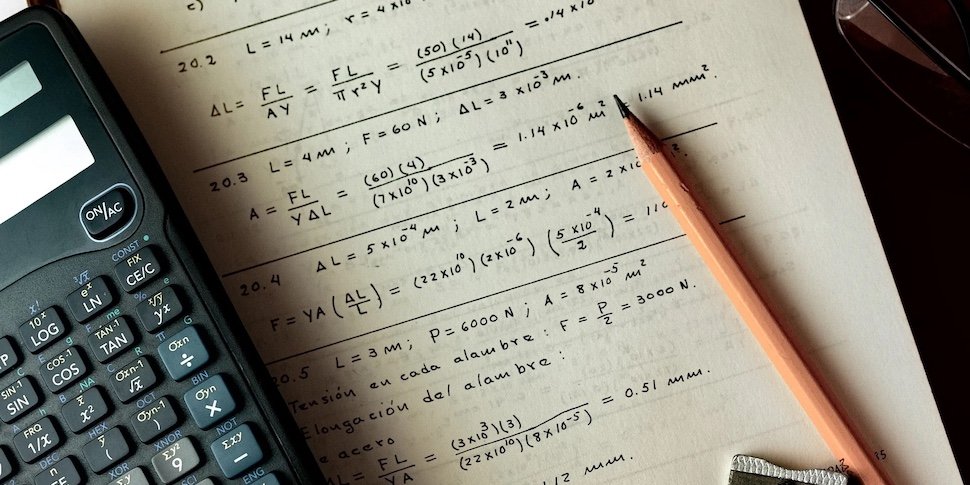 c)
20.2 L = 14 m; r = 4x10
ΔL = FL/AY = FL/πr²Y = (50)(14)/(5x10⁻⁵)(10¹¹) = .14 x10
20.3 L = 4m; F = 60 N; ΔL = 3 x10⁻³ m.
A = FL/YΔL = (60)(4)/(7x10¹⁰)(3x10⁻³) = 1.14 x10⁻⁶ m² = 1.14 mm².
20.4 ΔL = 5x10⁻⁴ m; L = 2m; A = 2x10
F = YA(ΔL/L) = (22x10¹⁰)(2x10⁻⁶)(5x10⁻⁴/2) = 110
20.5 L = 3m; P = 6000 N; A = 8x10⁻⁵ m²
Tensión en cada alambre: F = P/2 = 3000 N.
Elongación del alambre:
acero
ΔL = FL/YA = (3x10³)(3)/(22x10¹⁰)(8x10⁻⁵) = 0.51 mm.
1/2 mm.
ON/AC
CONST
FIX
CE/C
³√x
eˣ
LN
%
ˣ√y
yˣ
x!
10ˣ
LOG
F me
TAN⁻¹
TAN
Π
σxn
÷
COS⁻¹
COS
R
σxn-1
√x
SIN⁻¹
SIN
NA
x²
OCT
σyn-1
)
BIN
σyn
×
FRQ
1/x
HEX
(
XNOR
Σy²
9
NOT
Σxy
−
DEC
n
XOR
ENG